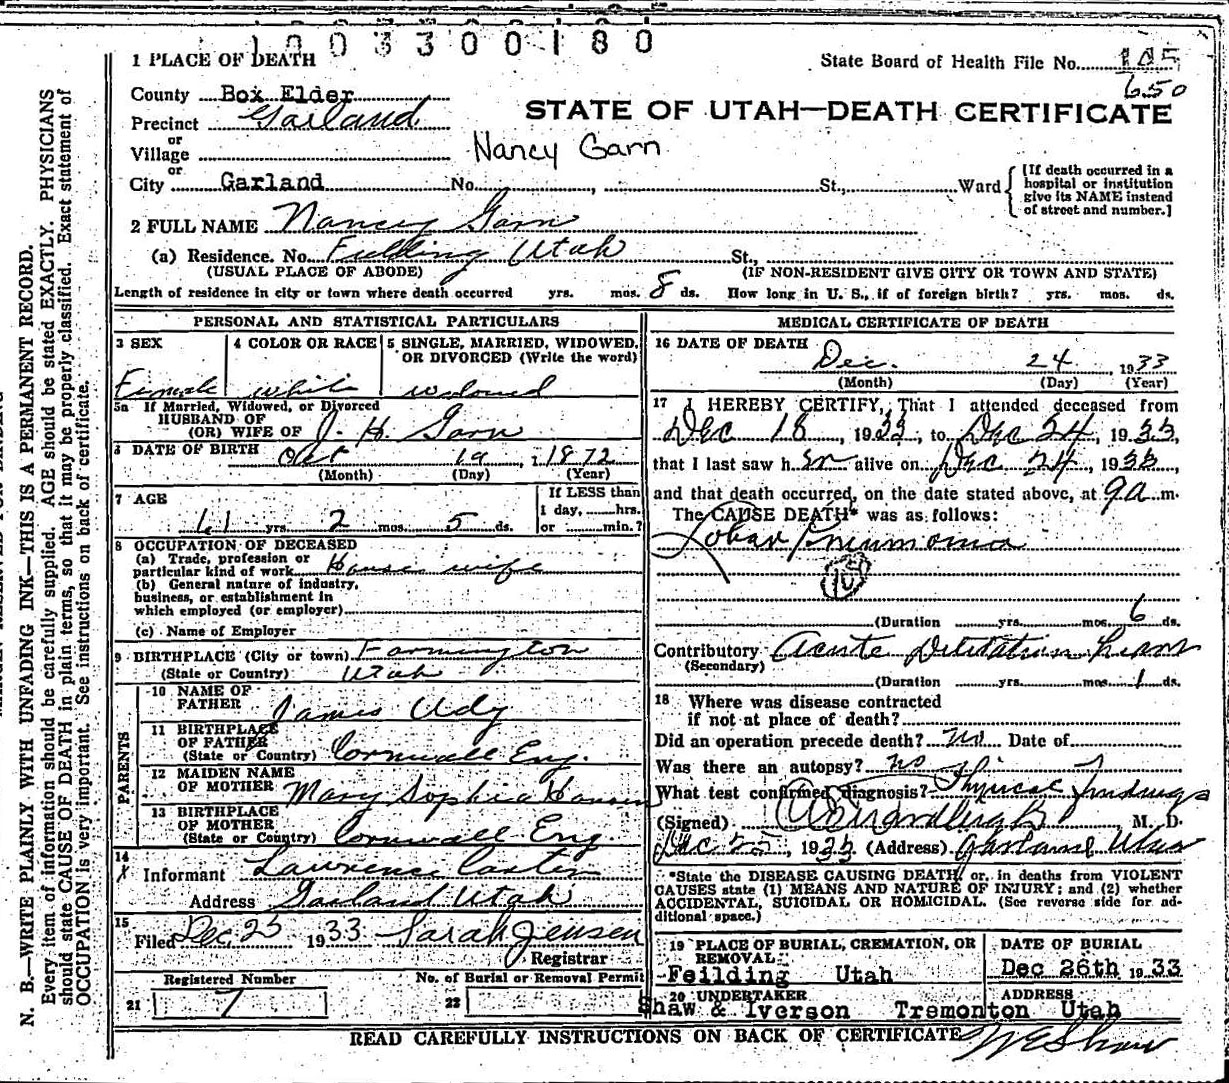 1003300180
1 PLACE OF DEATH
State Board of Health File No. 105
650
County Box Elder
STATE OF UTAH—DEATH CERTIFICATE
Precinct Garland
or
Village
Nancy Garn
or
City Garland No. , St., Ward
[If death occurred in a hospital or institution give its NAME instead of street and number.]
2 FULL NAME Nancy Garn
(a) Residence. No. Fielding Utah St.,
(USUAL PLACE OF ABODE) (IF NON-RESIDENT GIVE CITY OR TOWN AND STATE)
Length of residence in city or town where death occurred yrs. mos. 8 ds. How long in U. S., if of foreign birth? yrs. mos. ds.
PERSONAL AND STATISTICAL PARTICULARS
3 SEX
Female
4 COLOR OR RACE
white
5 SINGLE, MARRIED, WIDOWED,
OR DIVORCED (Write the word)
widowed
5a If Married, Widowed, or Divorced
HUSBAND OF
(OR) WIFE OF J. H. Garn
6 DATE OF BIRTH Oct 19, 1872
(Month) (Day) (Year)
7 AGE
61 yrs. 2 mos. 5 ds.
If LESS than
1 day, hrs.
or min.?
8 OCCUPATION OF DECEASED
(a) Trade, profession or
particular kind of work House wife
(b) General nature of industry,
business, or establishment in
which employed (or employer)
(c) Name of Employer
9 BIRTHPLACE (City or town) Farmington
(State or Country) Utah
PARENTS
10 NAME OF
FATHER James Udy
11 BIRTHPLACE
OF FATHER
(State or Country) Cornwall Eng.
12 MAIDEN NAME
OF MOTHER Mary Sophia
13 BIRTHPLACE
OF MOTHER
(State or Country) Cornwall Eng.
14
Informant Lawrence
Address Garland Utah
15
Filed Dec. 25 1933 Sarah Jensen
Registrar
Registered Number
21 7
No. of Burial or Removal Permit
22
MEDICAL CERTIFICATE OF DEATH
16 DATE OF DEATH
Dec. 24, 1933
(Month) (Day) (Year)
17 I HEREBY CERTIFY, That I attended deceased from
Dec 18, 1933, to Dec 24, 1933,
that I last saw her alive on Dec 24, 1933,
and that death occurred, on the date stated above, at 9 a m.
The CAUSE DEATH* was as follows:
Lobar Pneumonia
(Duration yrs. mos. 6 ds.
Contributory Acute Dilitation heart
(Secondary)
(Duration yrs. mos. 1 ds.
18 Where was disease contracted
if not at place of death?
Did an operation precede death? no Date of
Was there an autopsy? no
What test confirmed diagnosis? Physical Findings
(Signed) M. D.
Dec 25, 1933 (Address) Garland Utah
*State the DISEASE CAUSING DEATH, or, in deaths from VIOLENT
CAUSES state (1) MEANS AND NATURE OF INJURY; and (2) whether
ACCIDENTAL, SUICIDAL OR HOMICIDAL. (See reverse side for ad-
ditional space.)
19 PLACE OF BURIAL, CREMATION, OR
REMOVAL
Feilding Utah
DATE OF BURIAL
Dec 26th 1933
20 UNDERTAKER
Shaw & Iverson
ADDRESS
Tremonton Utah
READ CAREFULLY INSTRUCTIONS ON BACK OF CERTIFICATE
W E Shaw
N. B.—WRITE PLAINLY WITH UNFADING INK—THIS IS A PERMANENT RECORD.
Every item of information should be carefully supplied. AGE should be stated EXACTLY. PHYSICIANS
should state CAUSE OF DEATH in plain terms, so that it may be properly classified. Exact statement of
OCCUPATION is very important. See instructions on back of certificate.